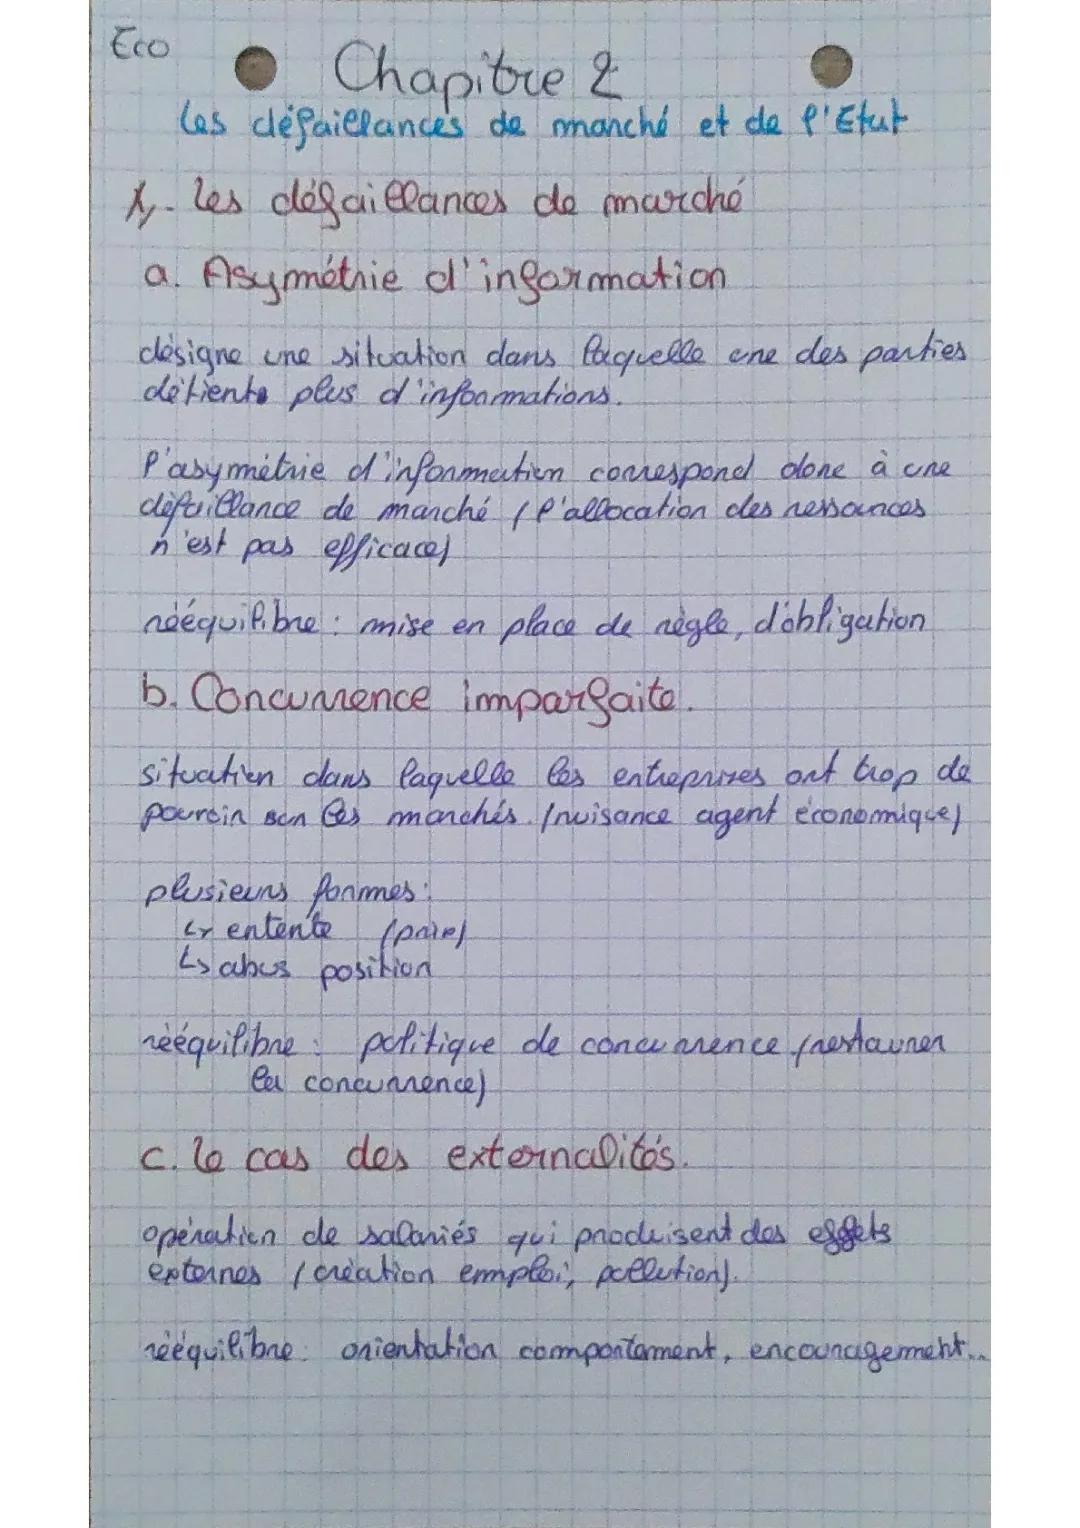 Eco
Chapitre 2
Les défaillances de marché et de l'Etat
1. Les défaillances de marché
a. Asymétrie d'information
désigne une situation dans laquelle une des parties
détient plus d'informations.
l'asymétrie d'information correspond donc à une
défaillance de marché (l'allocation des ressources
n'est pas efficace)
rééquilibre : mise en place de règle, d'obligation
b. Concurrence imparfaite.
situation dans laquelle les entreprises ont trop de
pouvoir sur les marchés. (nuisance agent économique)
plusieurs formes :
↳ entente (prix)
↳ abus position
rééquilibre : politique de concurrence (restaurer
la concurrence)
c. le cas des externalités.
opération de salariés qui produisent des effets
externes (création emploi, pollution).
rééquilibre : orientation comportament, encouragement...